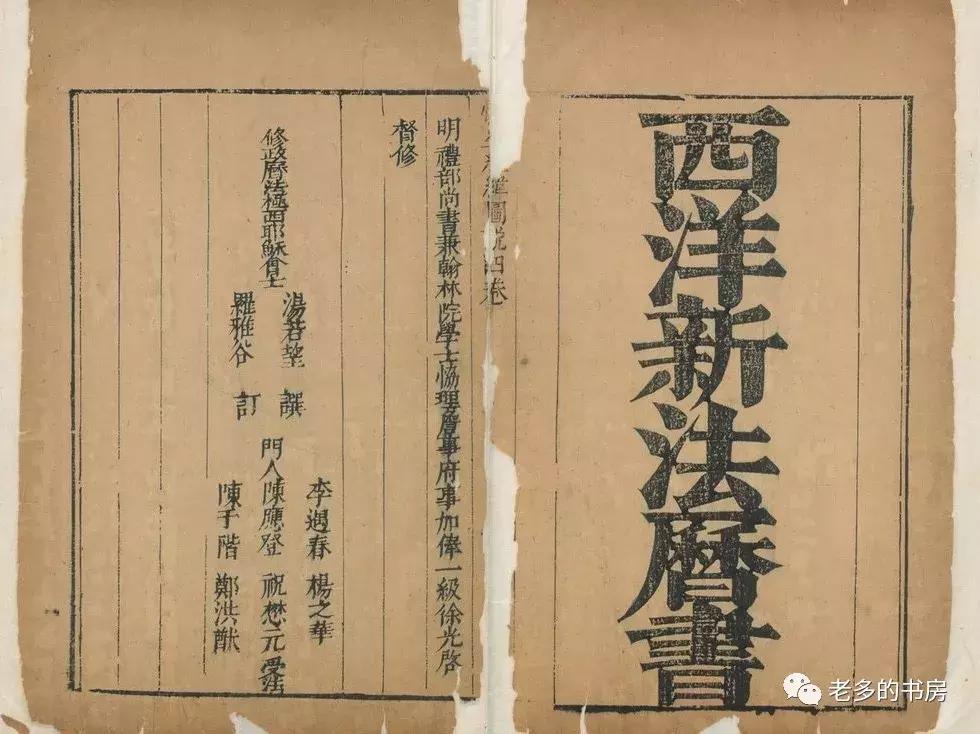 西洋新法曆書
緯圖說四卷
明禮部尚書兼翰林院學士恊理詹事府事加俸一級徐光啓
督修
修政曆法極西耶穌會士
湯若望 譔
羅雅谷 訂
李遇春 楊之華
門人陳應登 祝懋元 受法
陳于階 鄭洪猷
老多的书房